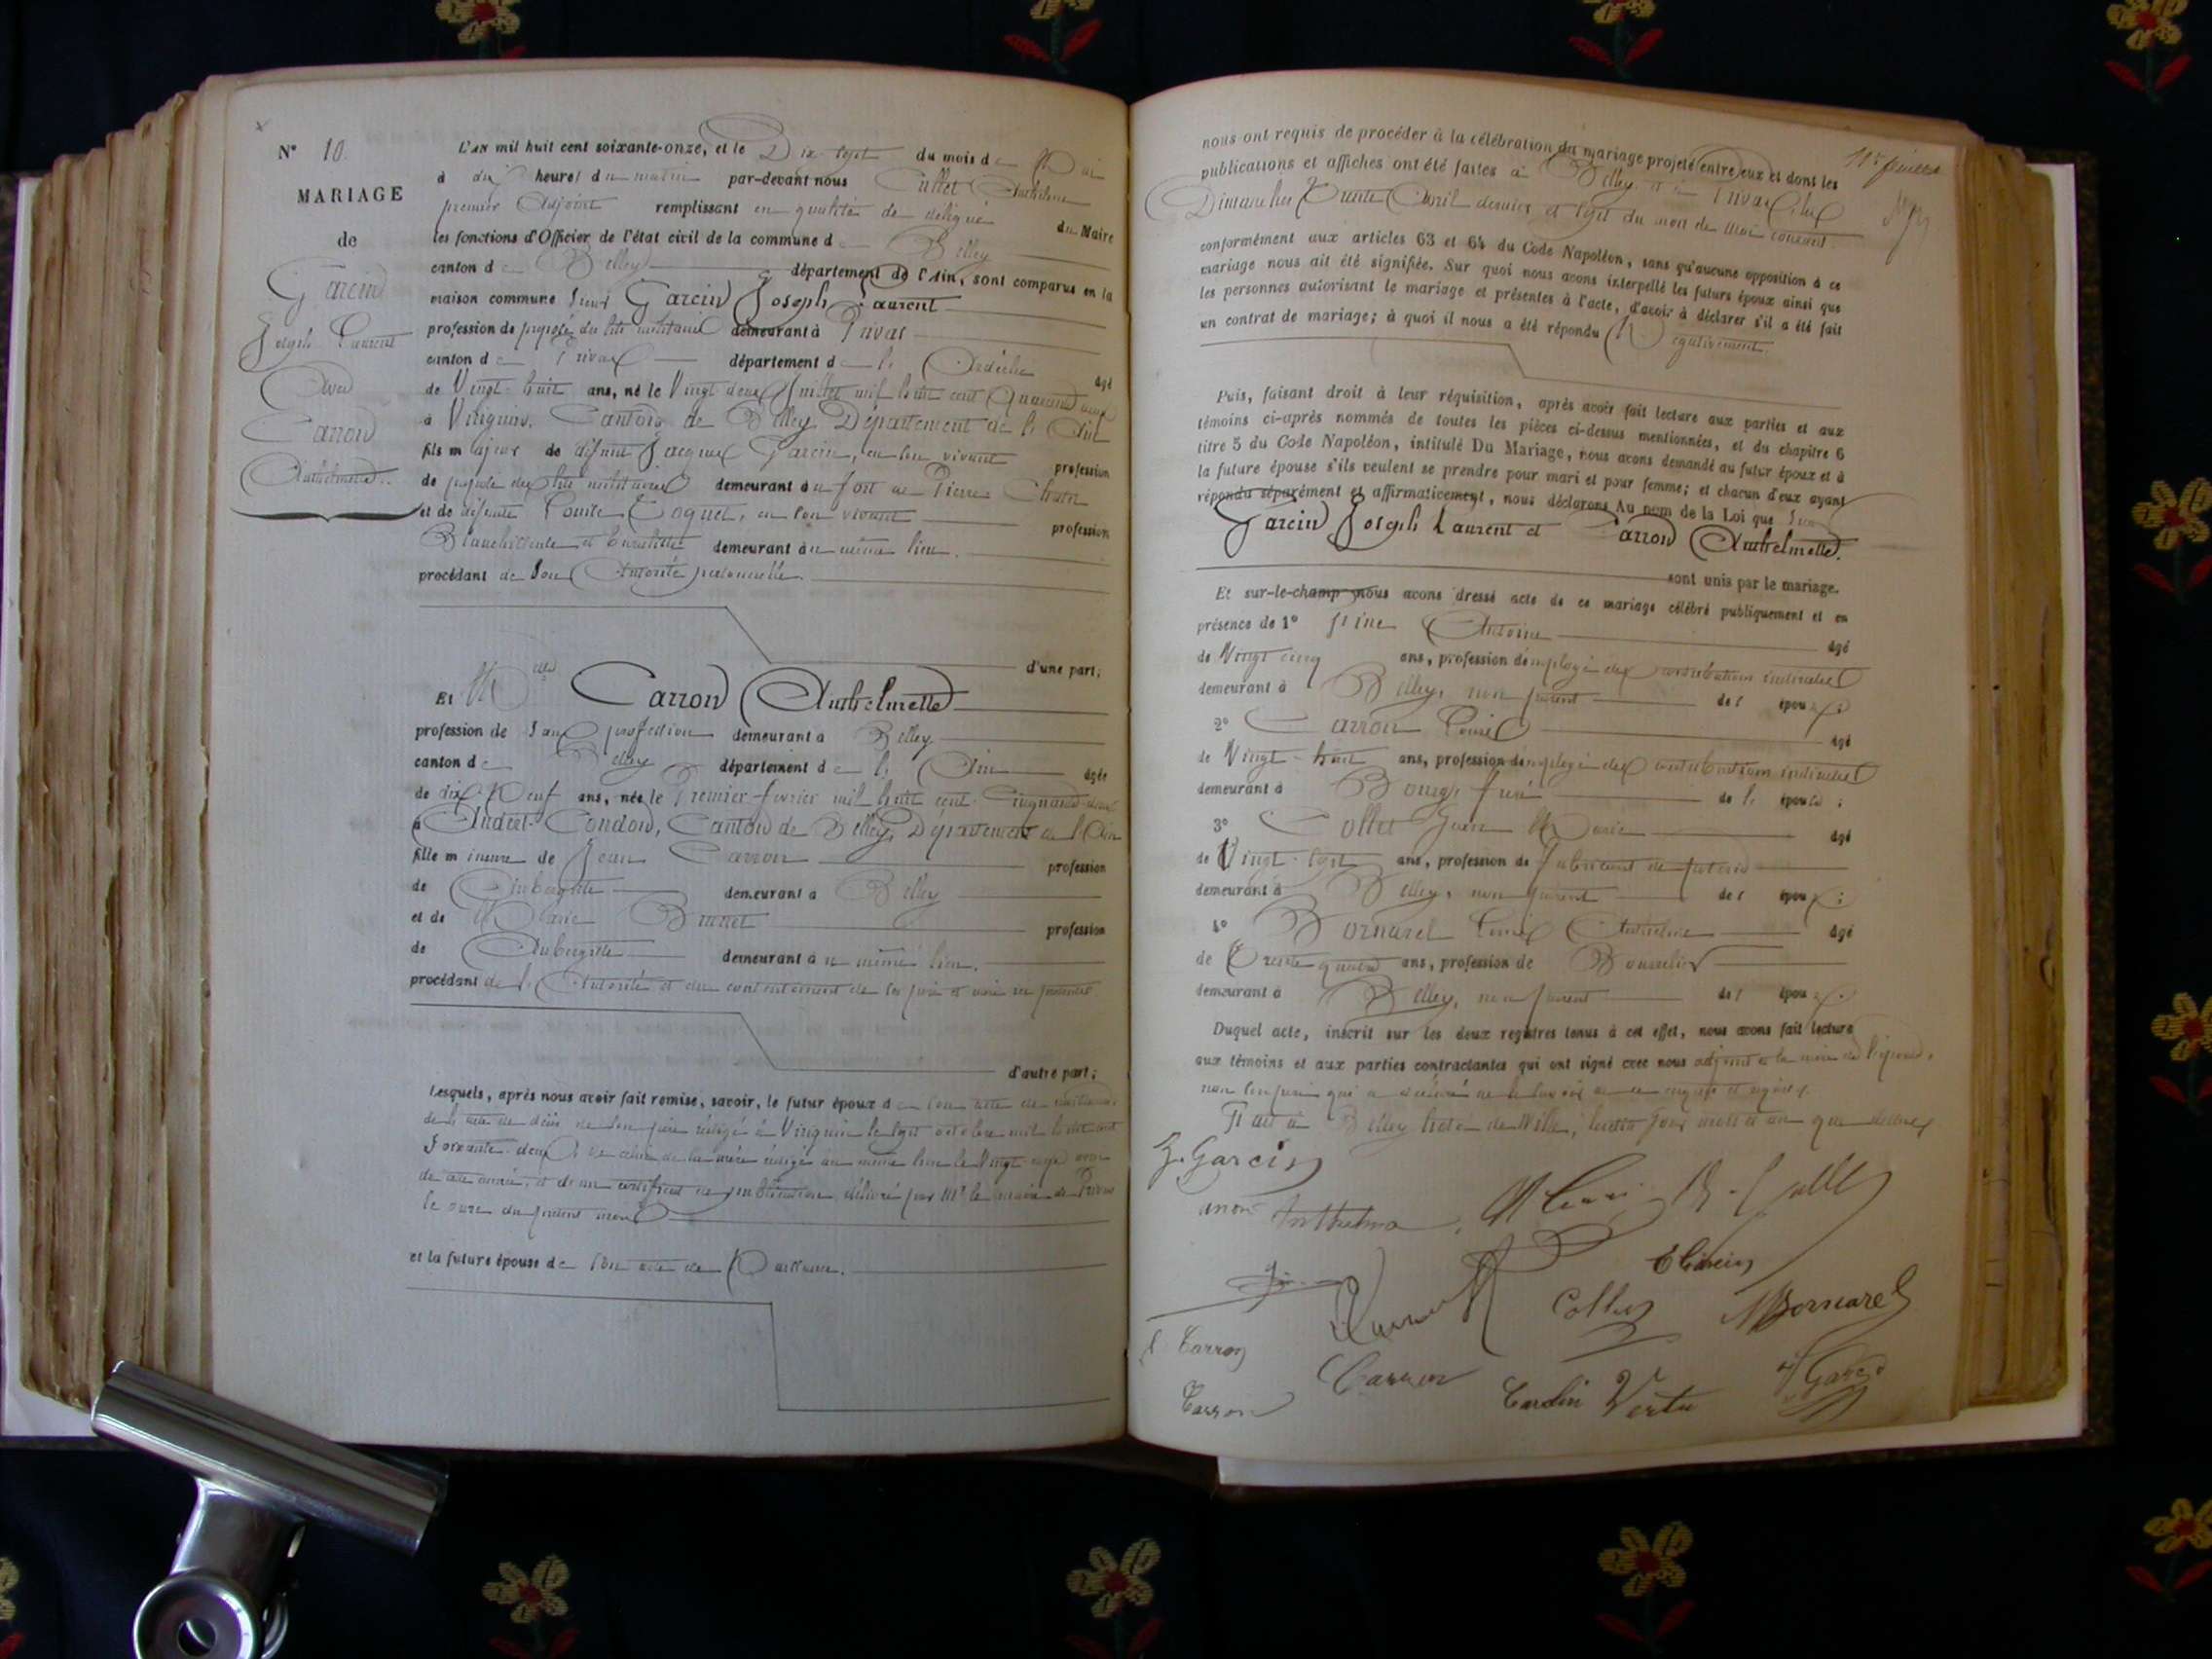 N° 10.
MARIAGE
de
Garcin
Joseph Laurent
Avec
Carron
Anthelmette.
L'AN mil huit cent soixante-onze, et le Dix sept du mois de Mai
à dix heures du matin par-devant nous Cullet Anthelme
premier Adjoint remplissant en qualité de délégué du Maire
les fonctions d'Officier de l'état civil de la commune de Belley
canton de Belley département de l'Ain, sont comparus en la
maison commune Sieur Garcin Joseph Laurent
profession de préposé des lits militaires demeurant à Privas
canton de Privas département de l' Ardèche âgé
de Vingt-huit ans, né le Vingt deux Juillet mil huit cent Quarante deux
à Virignin, Canton de Belley Département de l'Ain
fils majeur de défunt Jacques Garcin, en son vivant profession
de préposé des lits militaires demeurant au fort de Pierre Châtel
et de défunte Louise Coquet, en son vivant profession
Blanchisseuse et Buraliste demeurant au même lieu.
procédant de son Autorité personnelle.
d'une part;
Et Mlle Carron Anthelmette
profession de sans profession demeurant à Belley
canton de Belley département de l'Ain âgée
de dix Neuf ans, née le Premier février mil huit cent Cinquante deux
à Andert-Condon, Canton de Belley, Département de l'Ain
fille mineure de Jean Carron profession
de Aubergiste demeurant à Belley
et de Marie Brunet profession
de Aubergiste demeurant au même lieu.
procédant de l'Autorité et du consentement de ses père et mère
d'autre part;
Lesquels, après nous avoir fait remise, savoir, le futur époux de son acte de naissance,
de l'acte de décès de son père rédigé à Virignin le sept octobre mil huit cent
soixante-deux de celui de sa mère rédigé au même lieu le Vingt
de cette année, et de un certificat de publication, délivré par Mr le maire de Privas
le onze du présent mois
et la future épouse de son acte de Naissance.
11e feuillet
nous ont requis de procéder à la célébration du mariage projeté entre eux et dont les
publications et affiches ont été faites à Belley et à Privas, les
Dimanches Trente Avril dernier et sept du mois de Mai courant
conformément aux articles 63 et 64 du Code Napoléon, sans qu'aucune opposition à ce
mariage nous ait été signifiée. Sur quoi nous avons interpellé les futurs époux ainsi que
les personnes autorisant le mariage et présentes à l'acte, d'avoir à déclarer s'il a été fait
un contrat de mariage; à quoi il nous a été répondu Négativement.
Puis, faisant droit à leur réquisition, après avoir fait lecture aux parties et aux
témoins ci-après nommés de toutes les pièces ci-dessus mentionnées, et du chapitre 6
titre 5 du Code Napoléon, intitulé Du Mariage, nous avons demandé au futur époux et à
la future épouse s'ils veulent se prendre pour mari et pour femme; et chacun d'eux ayant
répondu séparément et affirmativement, nous déclarons Au nom de la Loi que Sieur
Garcin Joseph Laurent et Carron Anthelmette.
sont unis par le mariage.
Et sur-le-champ nous avons dressé acte de ce mariage célébré publiquement et en
présence de 1° Antoine âgé
de Vingt cinq ans, profession d'employé des contributions indirectes
demeurant à Belley, non parent des époux;
2° Carron Louis âgé
de Vingt-huit ans, profession d'employé des contributions indirectes
demeurant à Bourg, frère de l'épouse;
3° Collet Jean Marie âgé
de Vingt-sept ans, profession de fabricant de
demeurant à Belley, non parent des époux;
4° Bornarel Louis Anthelme âgé
de Trente quatre ans, profession de Bourrelier
demeurant à Belley, non parent des époux.
Duquel acte, inscrit sur les deux registres tenus à cet effet, nous avons fait lecture
aux témoins et aux parties contractantes qui ont signé avec nous adjoint et la mère de l'épouse,
non son père qui a déclaré ne le savoir de ce enquis et requis.
Fait à Belley hôtel de Ville, lesdits jour mois et an que dessus
J. Garcin
Anthelma
Garcin
Collet
Bornarel
Carron
Carron
Carron
Vertu
Garcin